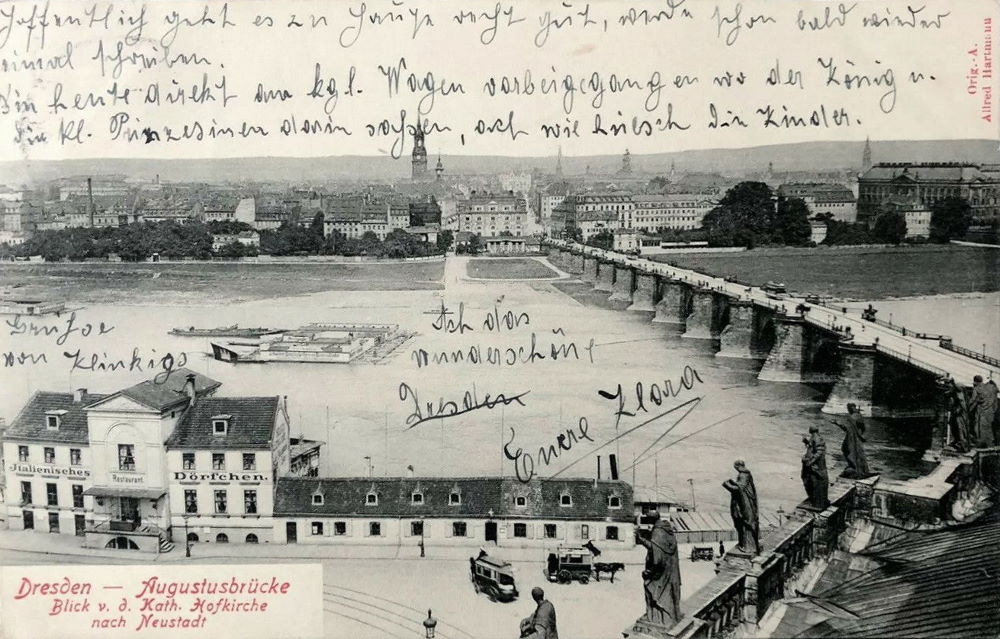 Hoffentlich geht es zu Hause recht gut, werde schon bald wieder
einmal schreiben.
Bin heute direkt am kgl. Wagen vorbeigegangen wo der König u.
die kl. Prinzessinen darin sassen, ach wie hübsch die Kinder.
Orig.-A.
Alfred Hartmann
Grüsse
von Klinkigs
Ach das
wunderschöne
Dresden
Eure Klara
Italienisches
Restaurant
Dörfchen.
Dresden — Augustusbrücke
Blick v. d. Kath. Hofkirche
nach Neustadt